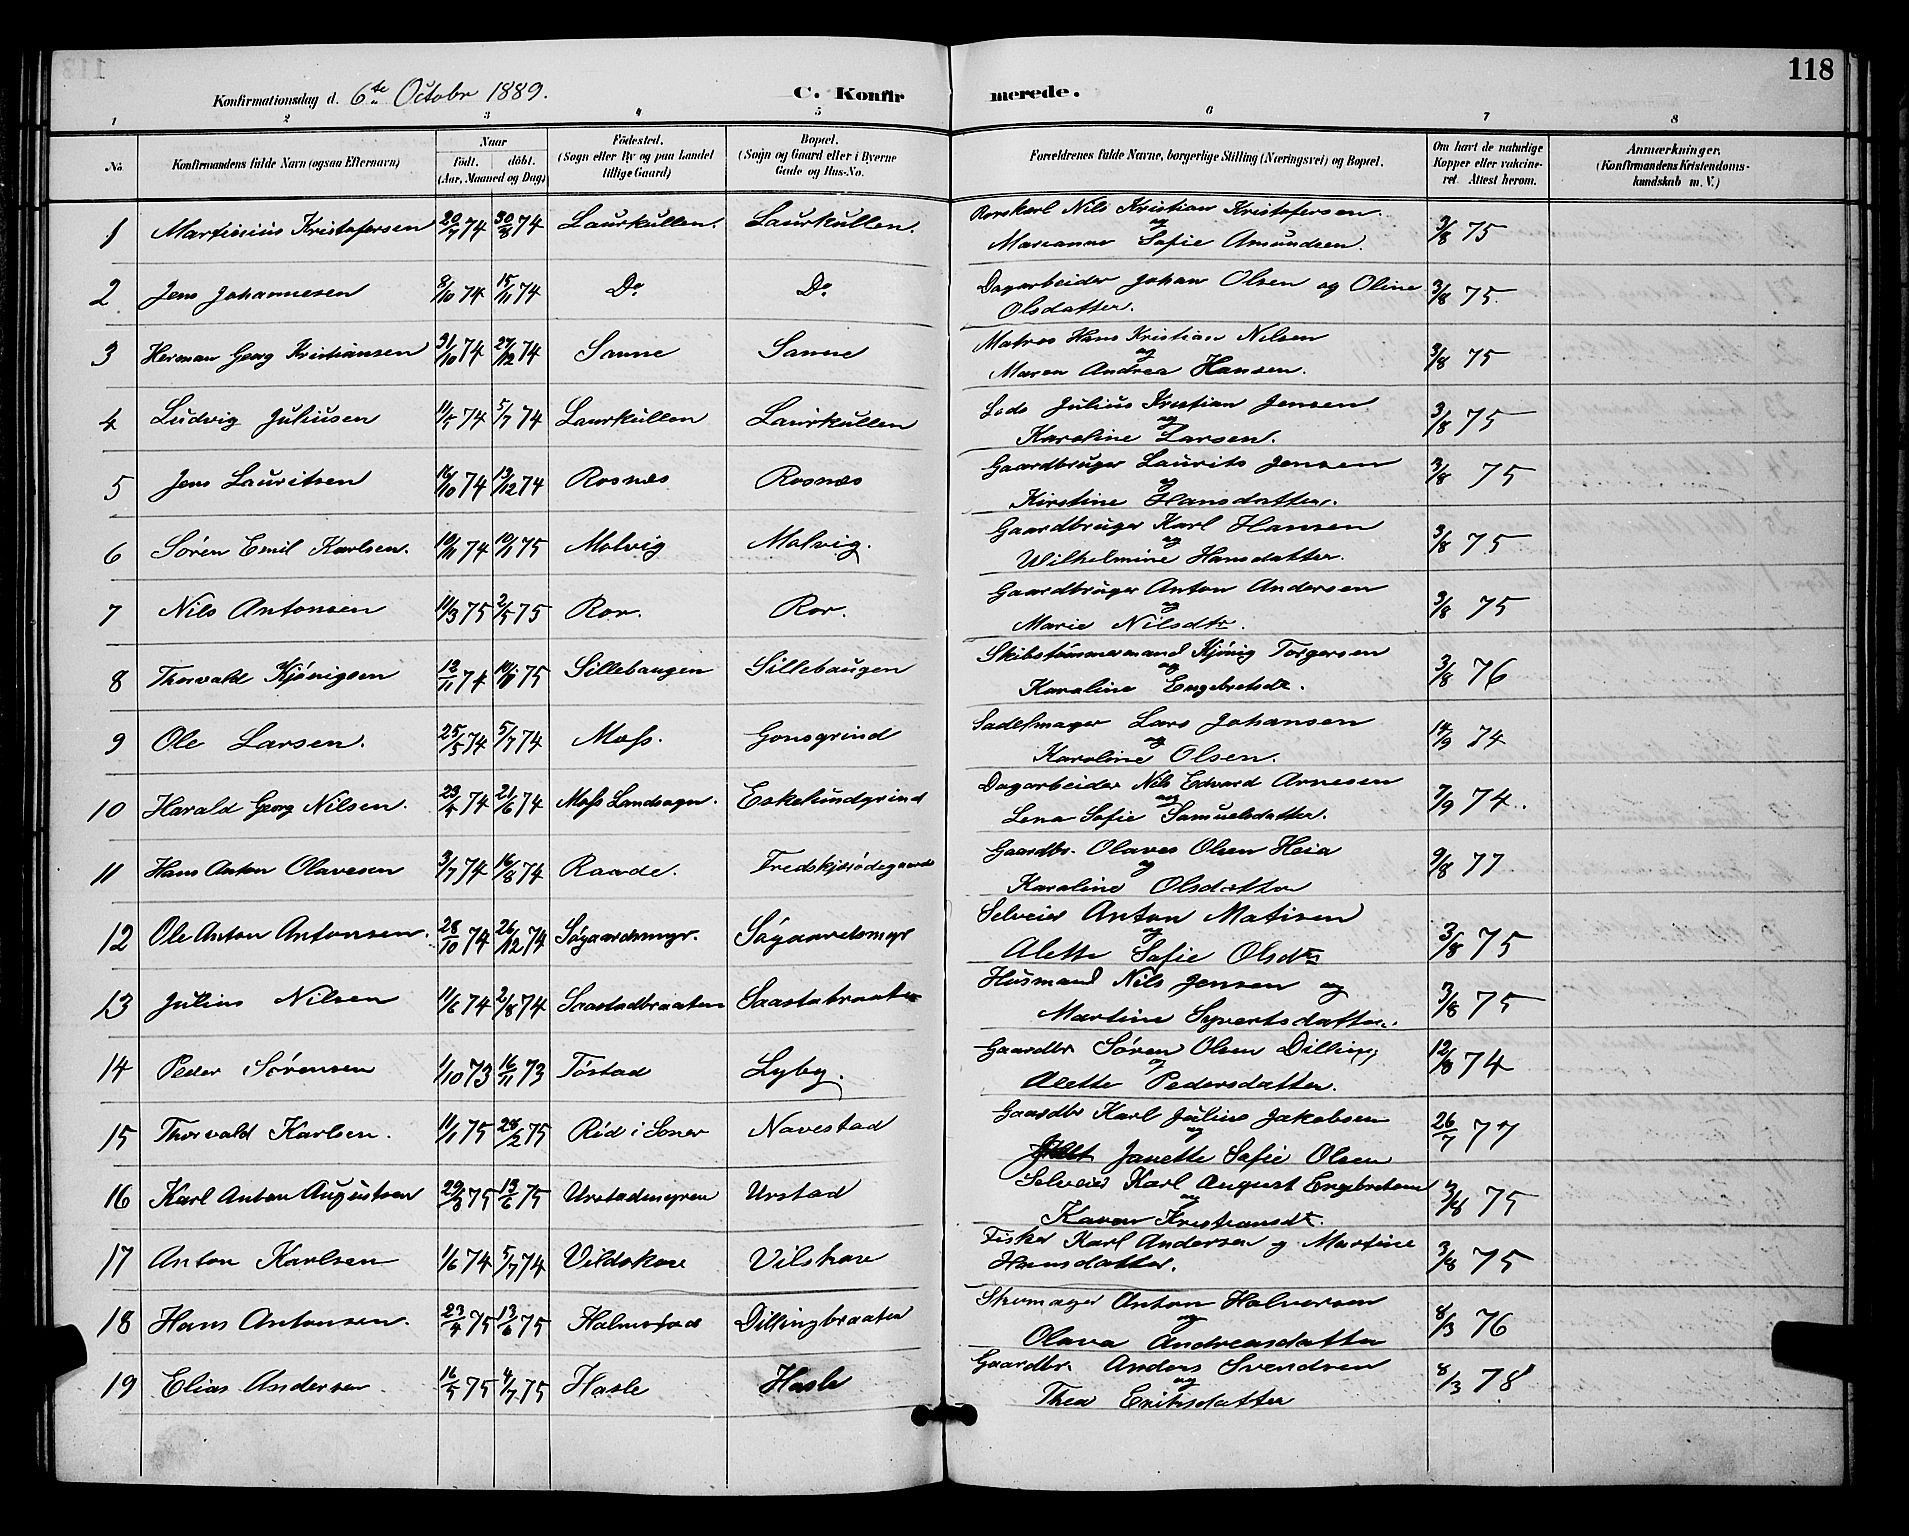 118
Konfirmationsdag d. 6te Octobr 1889. C. Konfirmerede.
1 2 3 4 5 6 7 8
No. Konfirmandens fulde Navn (ogsaa Efternavn) Naar født. døbt. (Aar, Maaned og Dag) Fødested. (Sogn eller By og paa Landet tillige Gaard) Bopæl. (Sogn og Gaard eller i Byerne Gade og Hus-No. Forældrenes fulde Navne, borgerlige Stilling (Næringsvei) og Bopæl. Om havt de naturlige Kopper eller vakcineret. Attest herom. Anmærkninger, (Konfirmandens Kristendomskundskab m. V.)
1 Martinius Kristofersen 20/7 74 30/8 74 Laurkullen. Laurkullen. Rorskarl Nils Kristian Kristofersen og 3/8 75
Marianne Sofie Amundsen.
2 Jens Johannesen 8/10 74 15/11 74 Do Do Dagarbeider Johan Olsen og Oline 3/8 75
Olsdatter.
3 Herman Georg Kristiansen 31/10 74 27/12 74 Sanne Sanne Matros Hans Kristian Nilsen og 3/8 75
Maren Andrea Hansen.
4 Ludvig Juliusen 11/5 74 5/7 74 Laurkullen Laurkullen Lods Julius Kristian Jensen og 3/8 75
Karoline Larsen.
5 Jens Lauritsen 16/10 74 13/12 74 Rosnæs Rosnæs Gaardbruger Laurits Jensen og 3/8 75
Kirstine Hansdatter.
6 Søren Emil Karlsen. 10/11 74 10/1 75 Molvig Molvig. Gaardbruger Karl Hansen og 3/8 75
Wilhelmine Hansdatter.
7 Nils Antonsen 11/3 75 2/5 75 Ror. Ror. Gaardbruger Anton Andersen og 3/8 75
Marie Nilsdtr.
8 Thorvald Kjønigsen 12/11 74 10/1 75 Sillebaugen Sillebaugen Skibstømmermand Kjønig Torgersen og 3/8 76
Karoline Engebretsdt.
9 Ole Larsen. 25/5 74 5/7 74 Moss. Gonsgrind Sadelmager Lars Johansen og 14/9 74
Karoline Olsen.
10 Harald Georg Nilsen. 23/4 74 21/6 74 Moss Landsogn. Eskelundgrind Dagarbeider Nils Edvard Arnesen og 7/9 74.
Lena Sofie Samuelsdatter.
11 Hans Anton Olavesen 3/7 74 16/8 74 Raade. Fredskjærødegaard Gaardbr. Olaves Olsen Heia og 9/8 77
Karoline Olsdatter
12 Ole Anton Antonsen. 28/10 74 26/12 74 Søgaardsmyr. Søgaardsmyr Selveier Anton Matisen og 3/8 75
Alette Sofie Olsdtr
13 Julius Nilsen 11/6 74 2/8 74 Saastadbraaten Saastabraaten Husmand Nils Jensen og 3/8 75
Martine Syvertsdatter.
14 Peder Sørensen 1/10 73 16/11 73 Tøstad Lyby. Gaardbr Søren Olsen Dilling og 12/8 74
Alette Pedersdatter.
15 Thorvald Karlsen. 11/1 75 28/2 75 Rød i Soner Navestad Gaardbr Karl Julius Jakobsen og 26/7 77
Janette Sofie Olsen
16 Karl Anton Augustsen 29/3 75 13/6 75 Urstadmyren Urstad Selveier Karl August Engebretsen og 3/8 75
Karen Kristiansdt.
17 Anton Karlsen 1/6 74 5/7 74 Vildskore Vilskore Fisker Karl Andersen og Martine 3/8 75
Hansdatter.
18 Hans Antonsen. 23/4 75 13/6 75 Holmefos Dillingbraaten Skomager Anton Halversen og 8/3 76
Olava Andreasdatter
19 Elias Andersen. 16/5 75 4/7 75 Hasle Hasle Gaardbr. Anders Svendsen og 8/3 78
Thea Eriksdatter